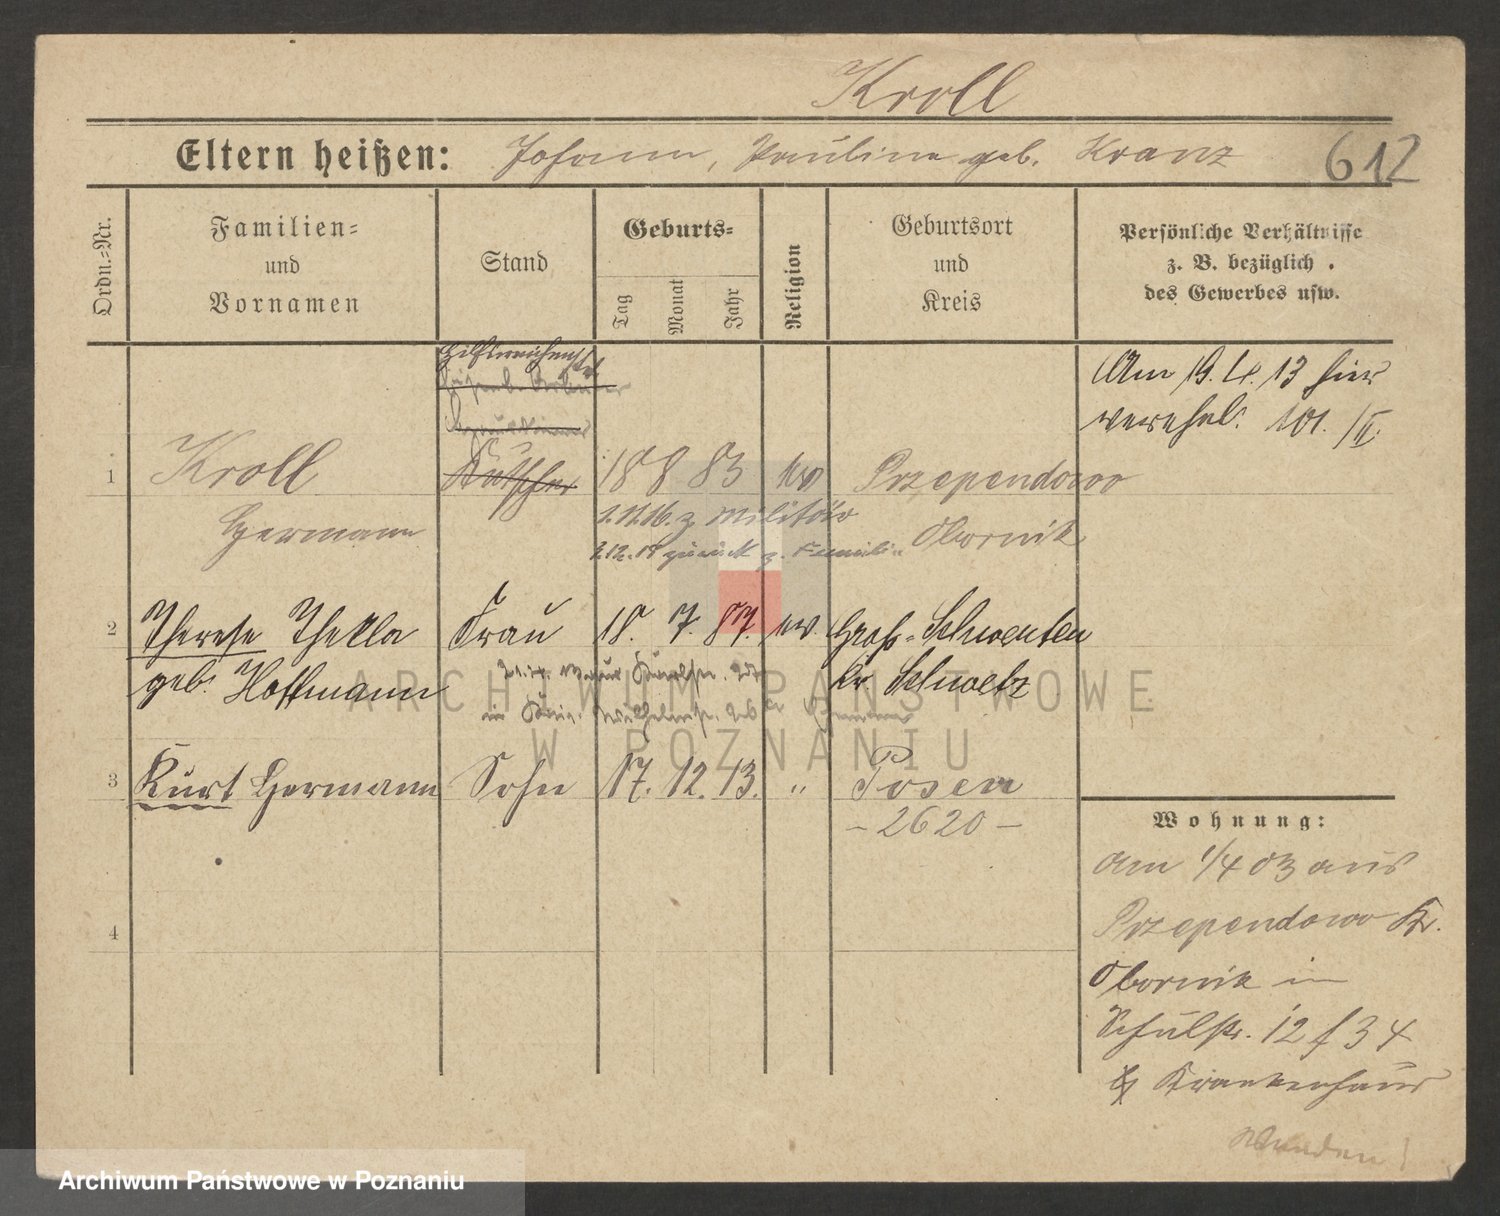 Kroll
Eltern heißen: Johann, Paulina geb. Kranz
612
Ordn.-Nr.
Familien-
und
Vornamen
Stand
Geburts-
Tag
Monat
Jahr
Religion
Geburtsort
und
Kreis
Persönliche Verhältnisse
z. B. bezüglich
des Gewerbes usw.
Am 19. 4. 13 hier
verehel. 101. /II.
1
Kroll
Hermann
Kutscher
18 8 83
Przependowo
Obornik
z. Militär
zurück z. Familie
2
Therese Thekla
geb. Hoffmann
Frau
18. 7. 87.
Groß-Schwenten
Kr. Schwetz
3
Kurt Hermann
Sohn
17. 12. 13.
"
Posen
- 2620 -
4
Wohnung:
am 1/4 03 aus
Przependowo Kr.
Obornik in
Schulstr. 12 f 34
Krankenhaus
ARCHIWUM PAŃSTWOWE
W POZNANIU
Archiwum Państwowe w Poznaniu